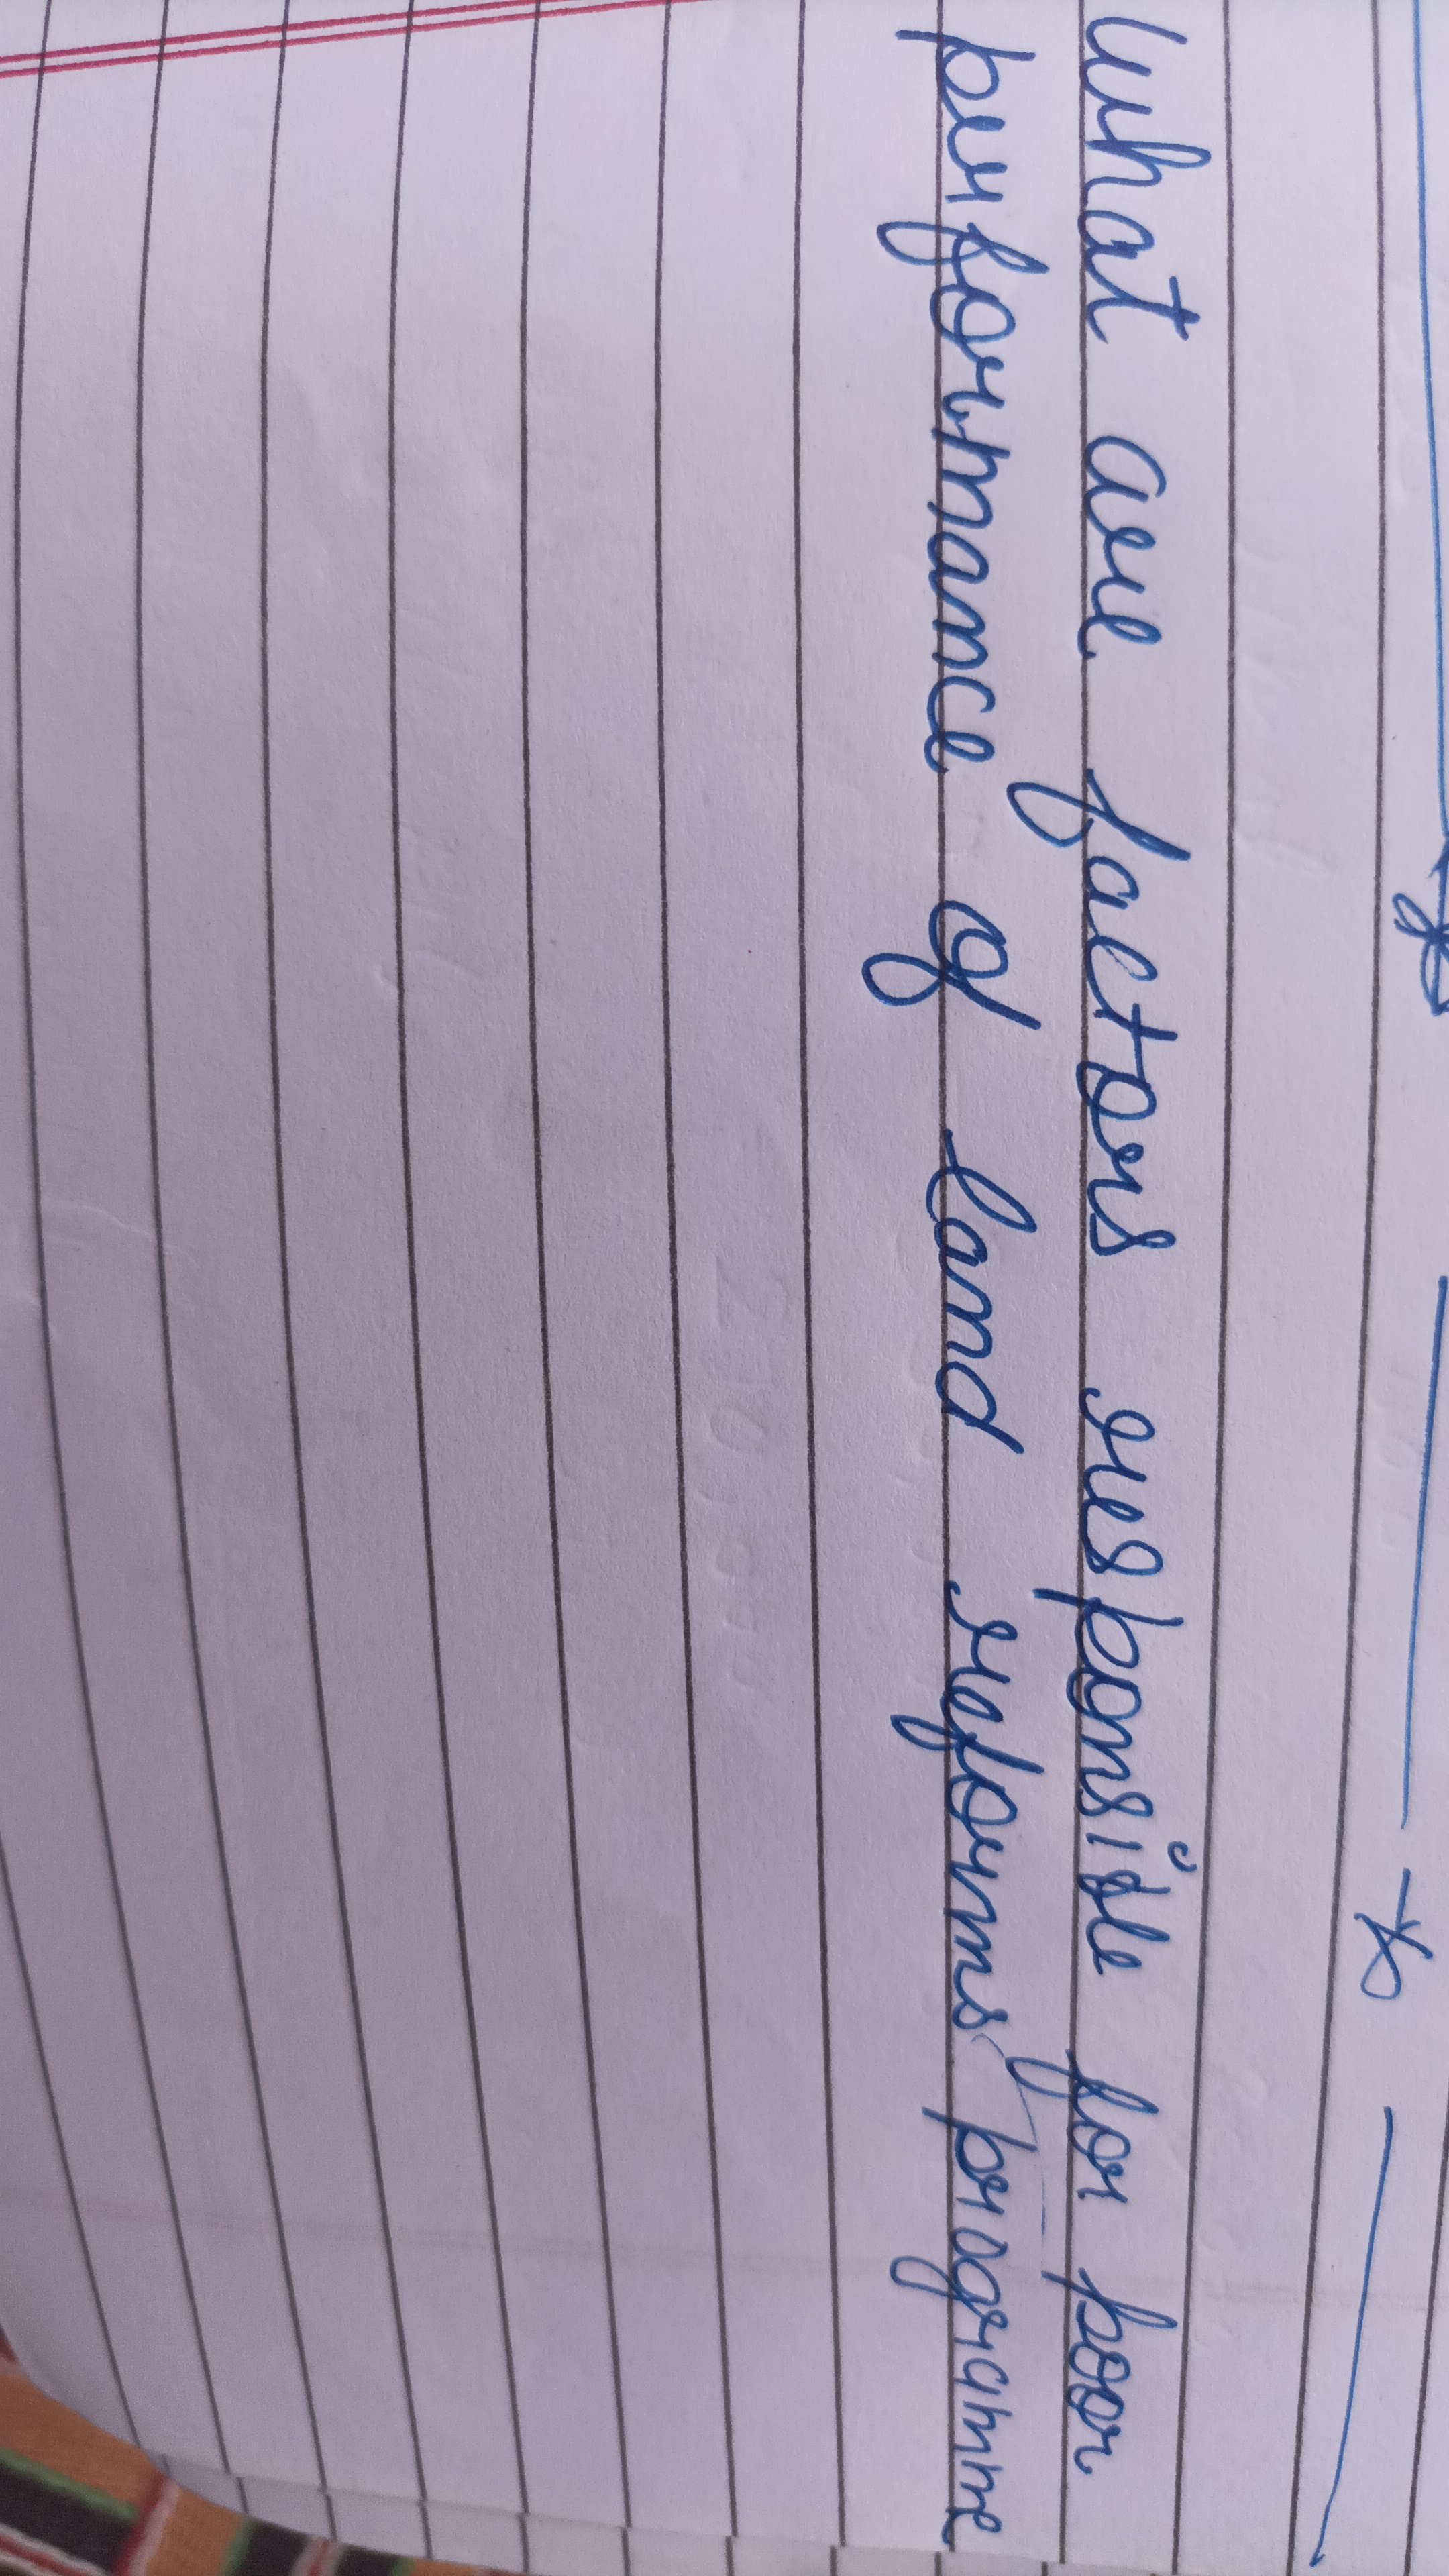 What are factors responsible for poor
performance of land reforms programme